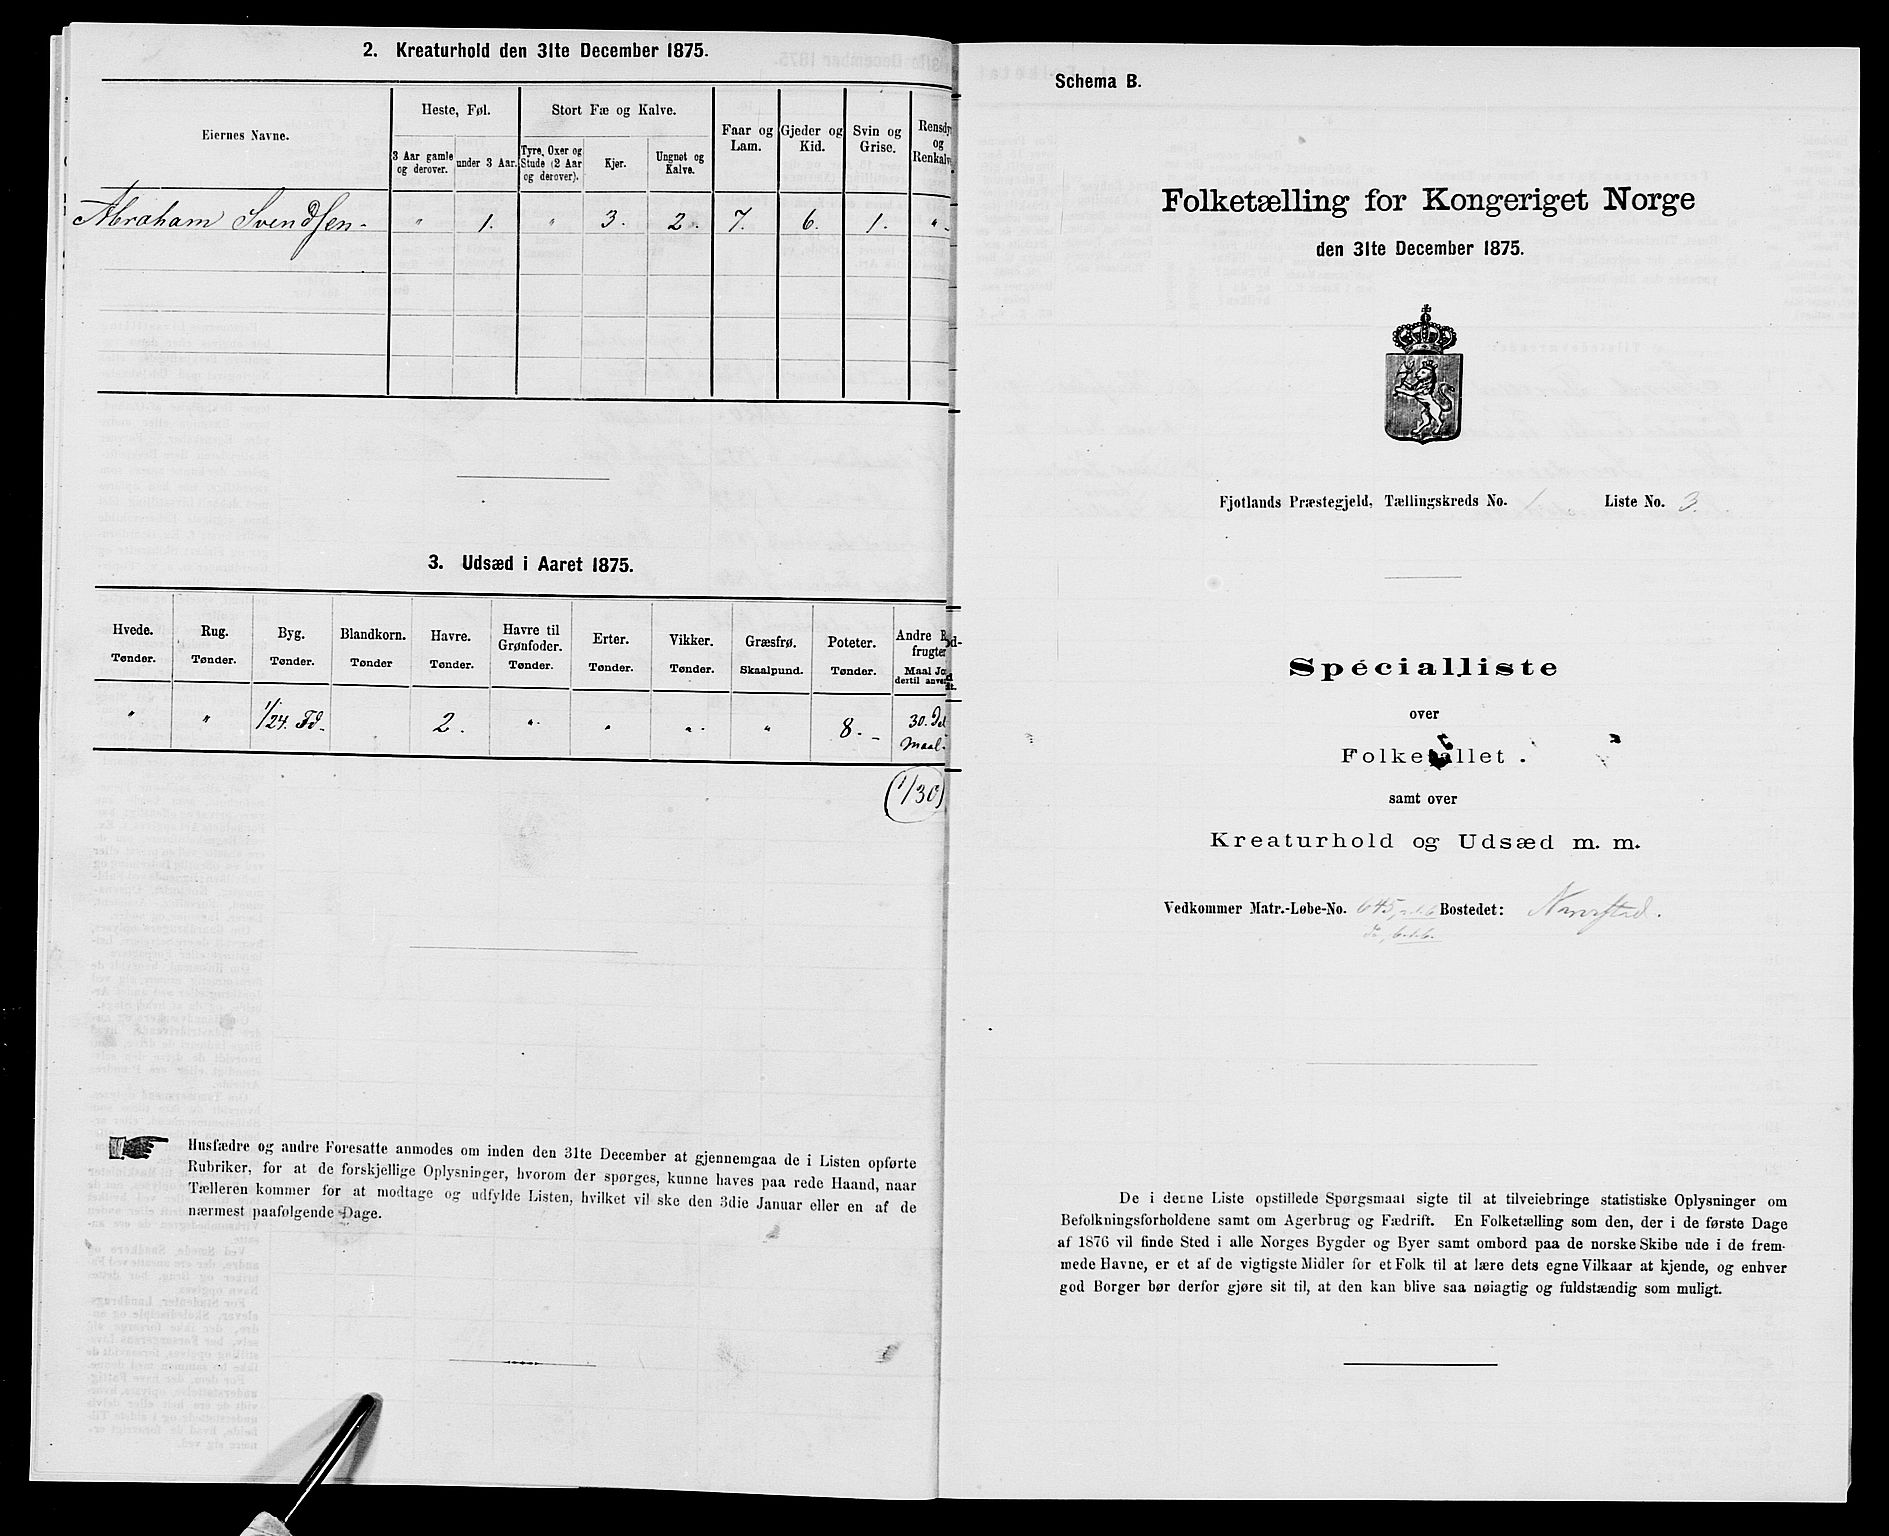 2. Kreaturhold den 31te December 1875.
Eiernes Navne.
Heste, Føl.
3 Aar gamle og derover.
under 3 Aar.
Stort Fæ og Kalve.
Tyre, Oxer og Stude (2 Aar og derover).
Kjør.
Ungnøt og Kalve.
Faar og Lam.
Gjeder og Kid.
Svin og Grise.
Rensdyr og Renkalve
Abraham Svendsen - " 1. " 3. 2. 7. 6. 1. "
3. Udsæd i Aaret 1875.
Hvede. Rug. Byg. Blandkorn. Havre. Havre til Grønfoder. Erter. Vikker. Græsfrø. Poteter. Andre R
frugter
Tønder. Tønder. Tønder. Tønder Tønder. Tønder. Tønder. Tønder. Skaalpund. Tønder. Maal Jo
dertil anve
" " 1/24. Td. 2. " " " " 8. - 30. Del
Maal.
(1/30)
Husfædre og andre Foresatte anmodes om inden den 31te December at gjennemgaa de i Listen opførte
Rubriker, for at de forskjellige Oplysninger, hvorom der spørges, kunne haves paa rede Haand, naar
Tælleren kommer for at modtage og udfylde Listen, hvilket vil ske den 3die Januar eller en af de
nærmest paafølgende Dage.
Schema B.
Folketælling for Kongeriget Norge
den 31te December 1875.
Fjotlands Præstegjeld, Tællingskreds No. 1 Liste No. 3.
Specialliste
over
Folketallet
samt over
Kreaturhold og Udsæd m. m.
Vedkommer Matr.-Løbe-No. 645, Bostedet:
De i denne Liste opstillede Spørgsmaal sigte til at tilveiebringe statistiske Oplysninger om
Befolkningsforholdene samt om Agerbrug og Fædrift. En Folketælling som den, der i de første Dage
af 1876 vil finde Sted i alle Norges Bygder og Byer samt ombord paa de norske Skibe ude i de frem-
mede Havne, er et af de vigtigste Midler for et Folk til at lære dets egne Vilkaar at kjende, og enhver
god Borger bør derfor gjøre sit til, at den kan blive saa nøiagtig og fuldstændig som muligt.